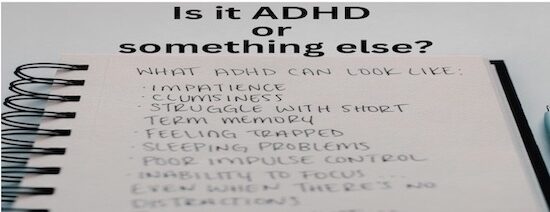 Is it ADHD
or
something else?
WHAT ADHD CAN LOOK LIKE:
· IMPATIENCE
· CLUMSINESS
· STRUGGLE WITH SHORT
TERM MEMORY
· FEELING TRAPPED
· SLEEPING PROBLEMS
· POOR IMPULSE CONTROL
· INABILITY TO FOCUS ...
EVEN WHEN THERE'S NO
DISTRACTIONS